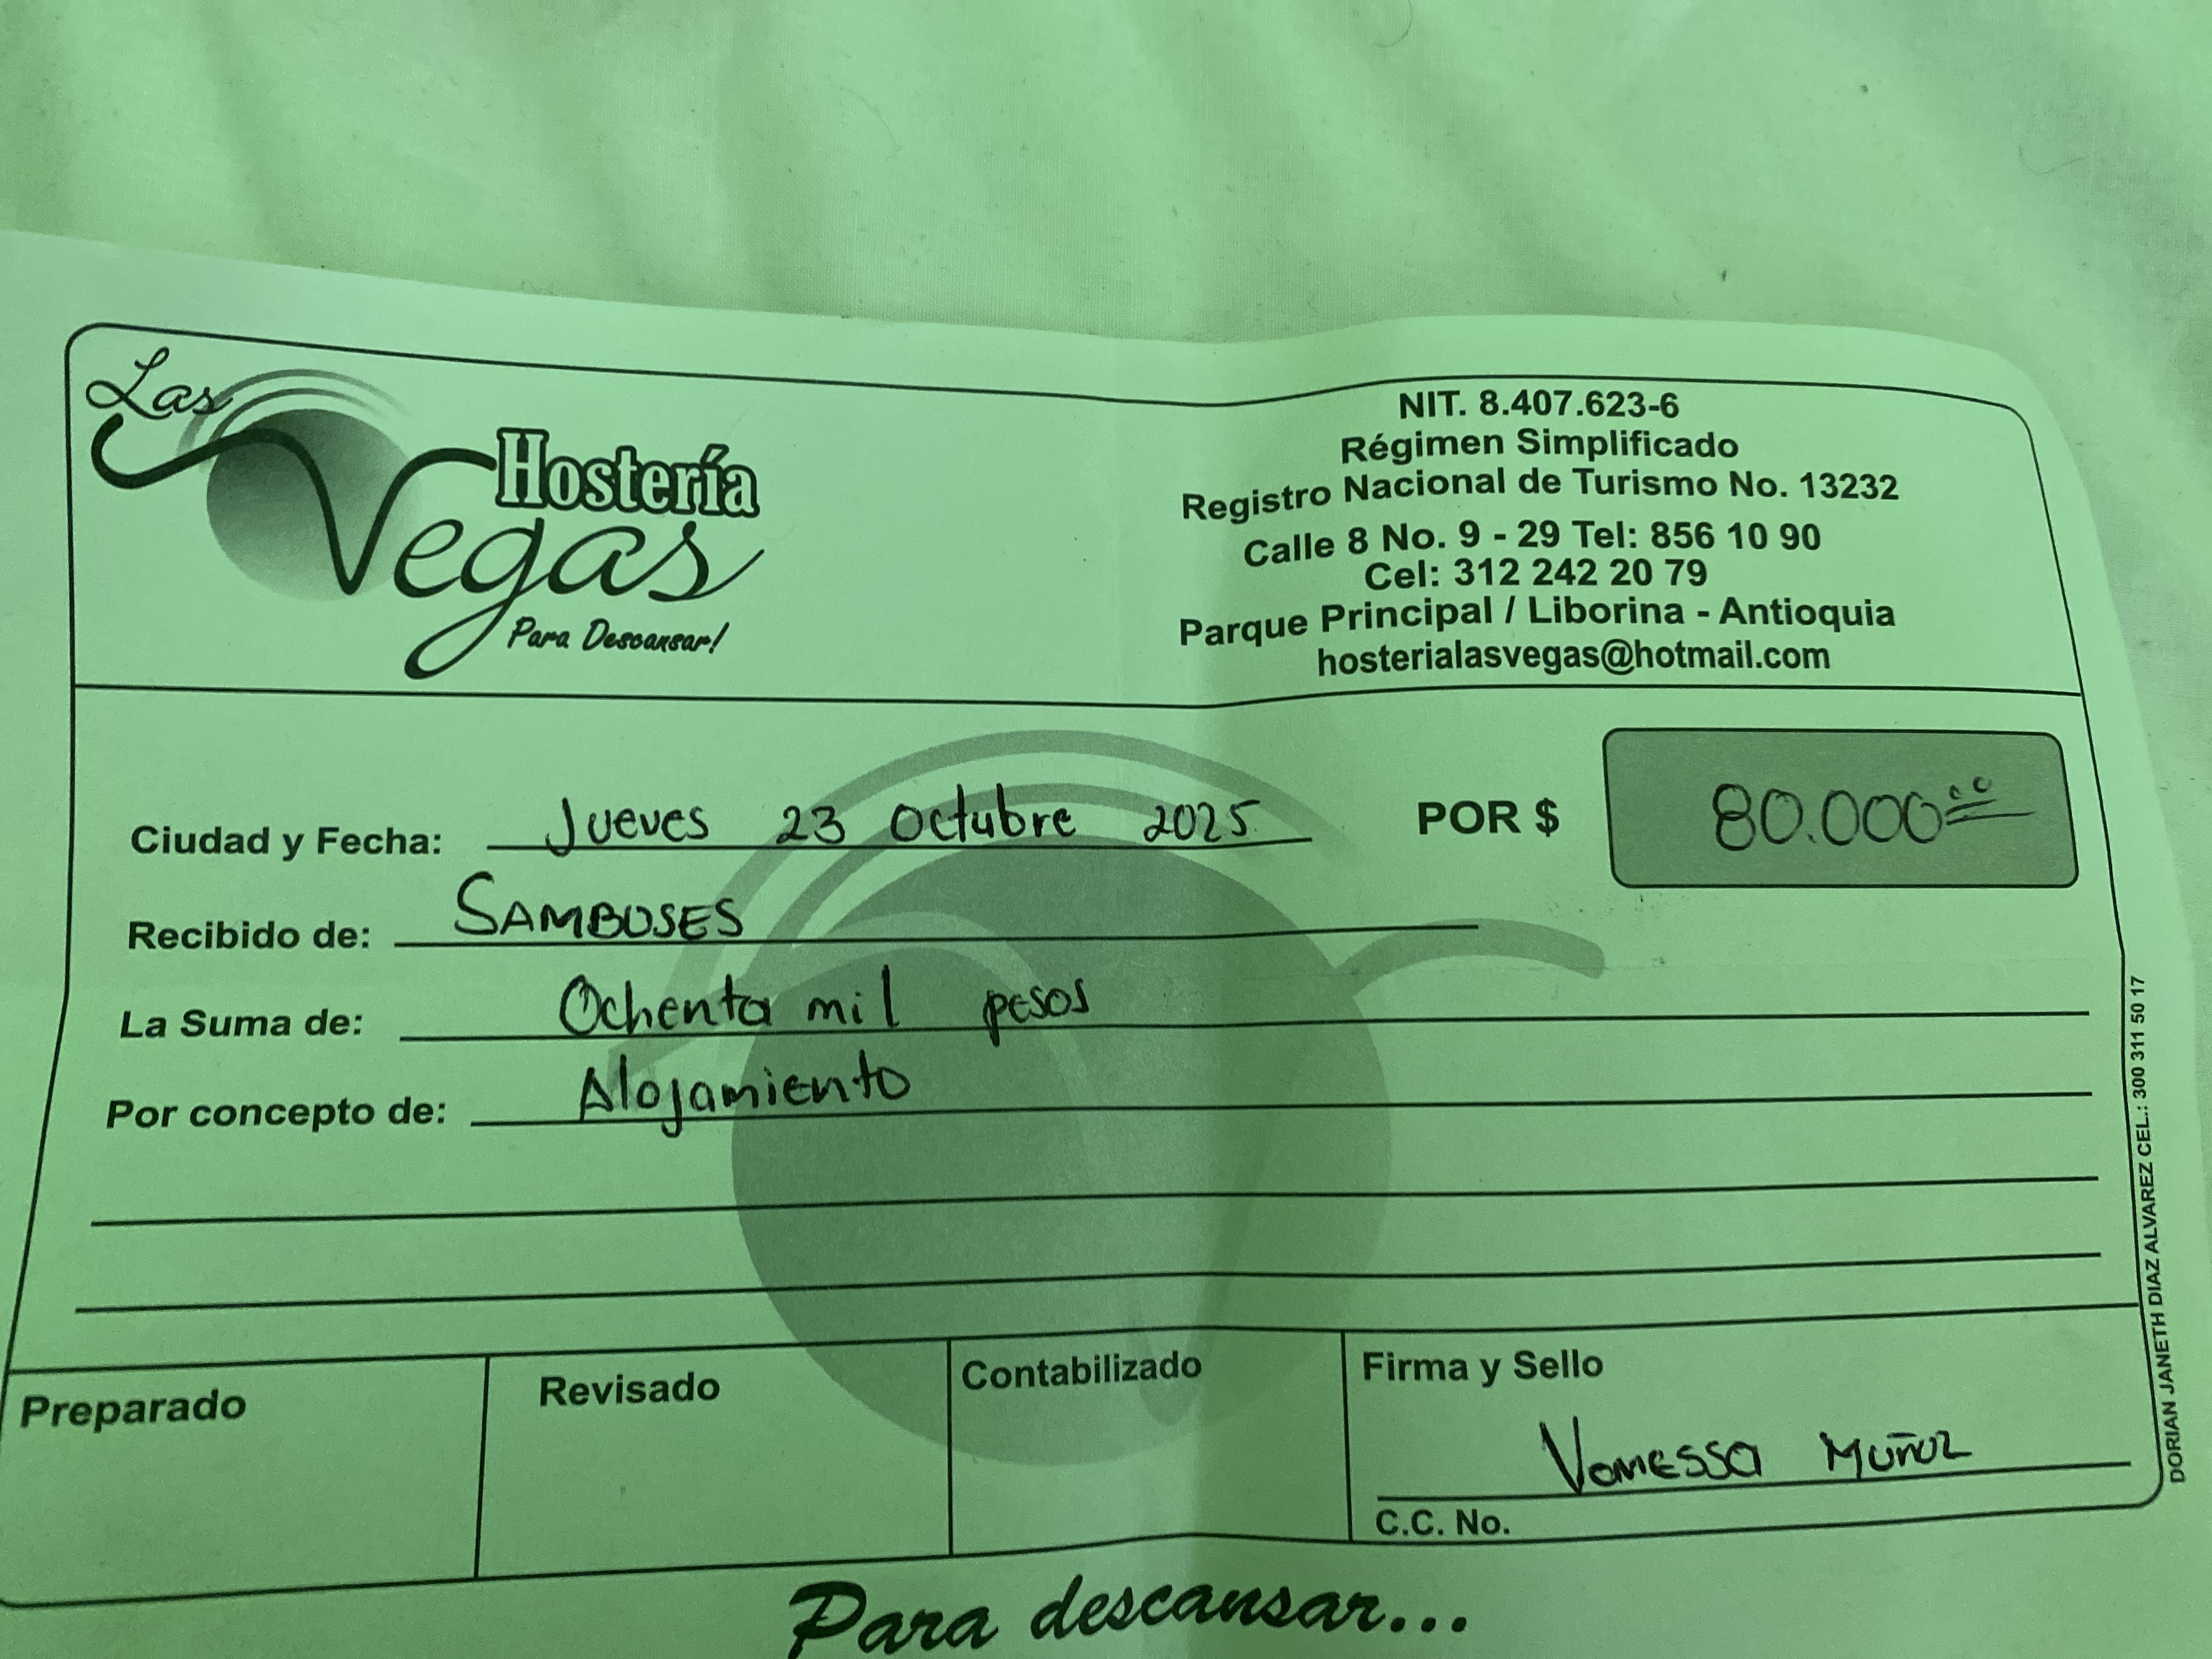 Las
Hostería
Vegas
Para Descansar!
NIT. 8.407.623-6
Régimen Simplificado
Registro Nacional de Turismo No. 13232
Calle 8 No. 9 - 29 Tel: 856 10 90
Cel: 312 242 20 79
Parque Principal / Liborina - Antioquia
hosterialasvegas@hotmail.com
Ciudad y Fecha: Jueves 23 Octubre 2025 POR $ 80.000 00
Recibido de: SAMBUSES
La Suma de: Ochenta mil pesos
Por concepto de: Alojamiento
Preparado Revisado Contabilizado Firma y Sello
Vanessa Muñoz
C.C. No.
DORIAN JANETH DIAZ ALVAREZ CEL.: 300 311 50 17
Para descansar...